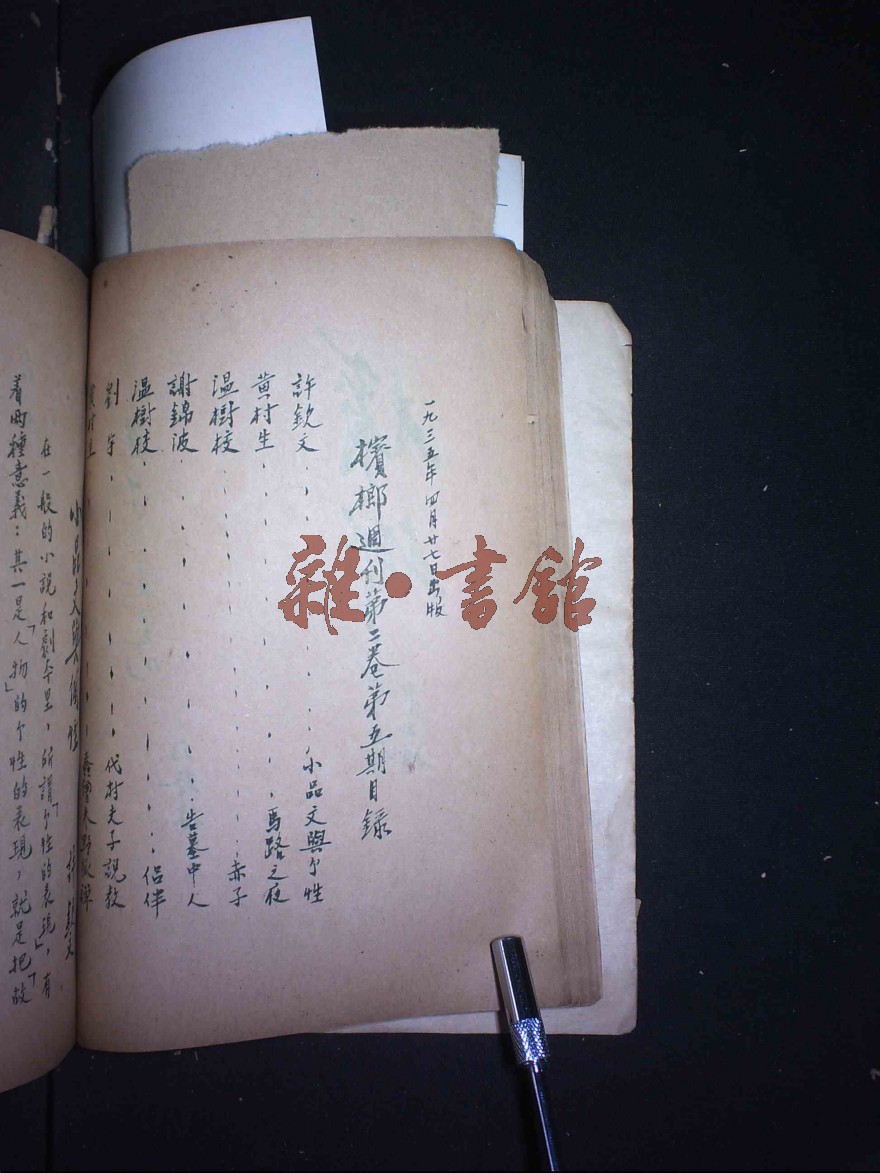 一九三五年四月廿七日出版
檳榔週刊第二卷第五期目錄
許欽文・・・・・・・・小品文與个性
黄村生・・・・・・・・馬路之夜
温樹校・・・・・・・・赤子
謝錦波・・・・・・・・告墓中人
温樹校・・・・・・・・侣伴
劉宇・・・・・・・・代村夫子說教
小品文與個性 許欽文
在一般的小說和劇本里，所謂「个性的表現」，有
着两種意義：其一是「人物」的个性的表現，就是把「故
雜・書館